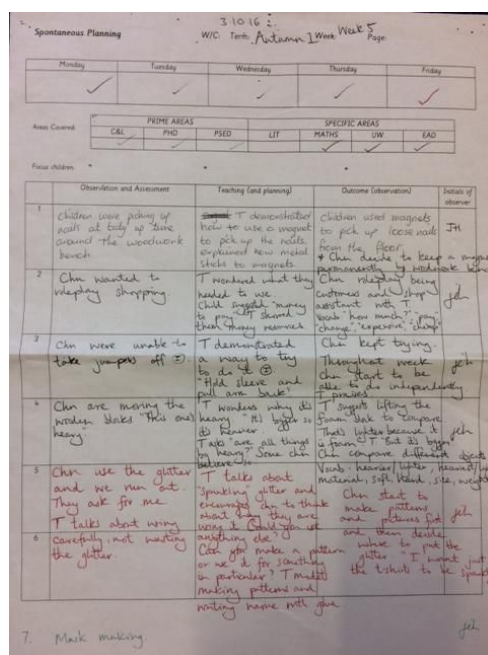 3.10.16
Spontaneous Planning W/C: Term: Autumn 1 Week: Week 5 Page:
Monday Tuesday Wednesday Thursday Friday
PRIME AREAS SPECIFIC AREAS
Areas Covered C&L PHD PSED LIT MATHS UW EAD
Focus children
Observation and Assessment Teaching (and planning) Outcome (observation) Initials of observer
1
Children were picking up
nails at tidy up time
around the woodwork
bench.
T demonstrated
how to use a magnet
to pick up the nails.
explained how metal
sticks to magnets.
Children used magnets
to pick up loose nails
from the floor.
* Chn decide to keep a magnet
permanently by woodwork bench
JH
2
Chn wanted to
roleplay shopping.
T wondered what they
needed to use.
Child suggested "money
to pay" T showed
them money resources.
Chn roleplay being
customers and shop
assistant with T.
Vocab "how much?" "pay"
"change", "expensive" "cheap"
jeh
3
Chn were unable to
take jumpers off
T demonstrated
a way to try
to do it
"Hold sleeve and
pull arm back!"
Chn kept trying.
Throughout week
chn start to be
able to do independently
T praises.
jeh
4
Chn are moving the
wooden blocks "This one's
heavy"
T wonders why it's
heavy. "It's bigger so
it's heavier.
T asks "are all things
big heavy?" Some chn
believe so.
T suggests lifting the
foam block to compare
"That's lighter because it
is foam" T "But it's bigger"
Chn compare different objects
Vocab: heavier/lighter, heaviest/
material, soft, hard, size, weight
jeh
5
Chn use the glitter
and we run out.
They ask for me
T talks about using
carefully, not wasting
the glitter.
T talks about
"sprinkling" glitter and
encourages chn to think
about how they are
using it. Could you use
anything else?
Can you make a pattern
or use it for something
in particular? T models
making patterns and
writing name with glue
Chn start to
make patterns
and pictures first
and then decide
where to put the
glitter. "I want just
the t-shirts to be
jeh
6
7. Mark making. jeh